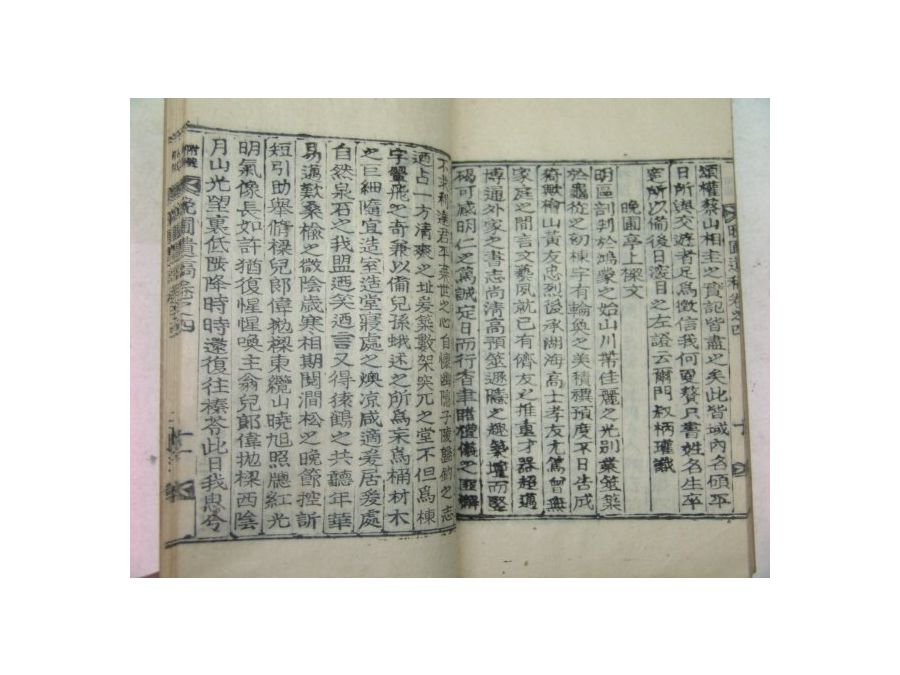 頌權蔡山相圭之實記皆盡之矣此皆域內名碩平
日所與交遊者足爲徵信我何更贅只書姓名生卒
所以備後日之左證云爾門叔柄瓘識
晚圃亭上樑文
明區剖判於鴻蒙之始山川帶佳麗之光別業
於龜從之初棟宇有輪奐之美積預度不日告成
山黃友忠烈後承湖海高士孝友尤篤曾無
家庭之間言文藝夙就已有儕友之推重才器超邁
博通外家之書志尚清高預築遯隱之趣築壇而
可感明仁之篤誠定日而行香
君平棄世之心自懷幽隱子陵之志
迺占一方清爽之址爰築數架突兀之堂不但爲棟
宇翬飛之奇兼以備兒孫蛾述之所爲桶材木
之巨細隨宜造室造堂寢處之燠凉咸適爰居爰處
自然泉石之我盟迺矣迺言又得猿鶴之共聽年華
易邁歎桑楡之微陰歲寒相期閱澗松之晚節控訴
短引助舉脩樑兒郞偉拋樑東纜山曉旭照牕紅光
明氣像長如許猶復惺惺喚主翁兒郞偉拋樑西陰
月山光望裏低陟降時時還復往榛苓此日我思兮
晚圃遺稿卷之四